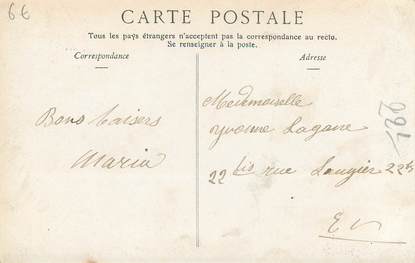 6€
CARTE POSTALE
Tous les pays étrangers n'acceptent pas la correspondance au recto.
Se renseigner à la poste.
Correspondance
Adresse
Bons baisers
Maria
Mademoiselle
Yvonne Lagane
22 bis rue Laugier 22 bis
E V